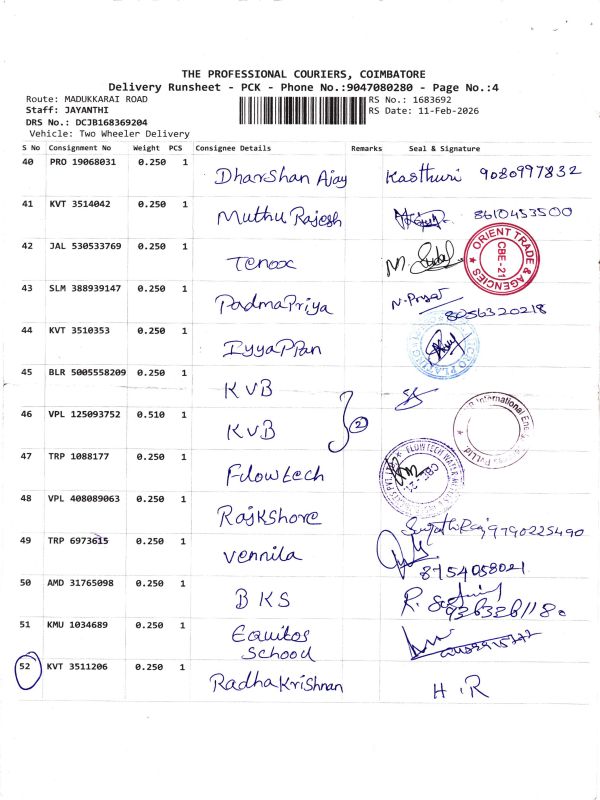 THE PROFESSIONAL COURIERS, COIMBATORE
Delivery Runsheet - PCK - Phone No.:9047080280 - Page No.:4
Route: MADUKKARAI ROAD
Staff: JAYANTHI
DRS No.: DCJB168369204
Vehicle: Two Wheeler Delivery
RS No.: 1683692
RS Date: 11-Feb-2026
S No Consignment No Weight PCS Consignee Details Remarks Seal & Signature
40 PRO 19068031 0.250 1 Dharshan Ajay Kasthuri 9080997832
41 KVT 3514042 0.250 1 Muthu Rajesh 8610453500
42 JAL 530533769 0.250 1 Tenox ORIENT TRADE & AGENCIES CBE-21
43 SLM 388939147 0.250 1 PadmaPriya 8056320218
44 KVT 3510353 0.250 1 IyyaPPan
45 BLR 5005558209 0.250 1 KVB
46 VPL 125093752 0.510 1 KVB 2 International
47 TRP 1088177 0.250 1 Flowtech FLOWTECH WATER CBE-21
48 VPL 408089063 0.250 1 RajKshore 9790225490
49 TRP 6973615 0.250 1 Vennila 8754058021
50 AMD 31765098 0.250 1 BKS
51 KMU 1034689 0.250 1 Equitos
School
52 KVT 3511206 0.250 1 RadhaKrishnan H.R